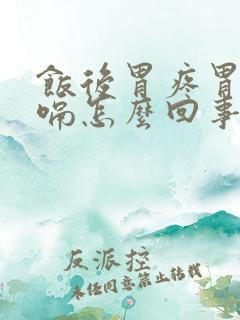 飯後胃疼胃
喘怎麼回事
反派控
未经同意禁止转载